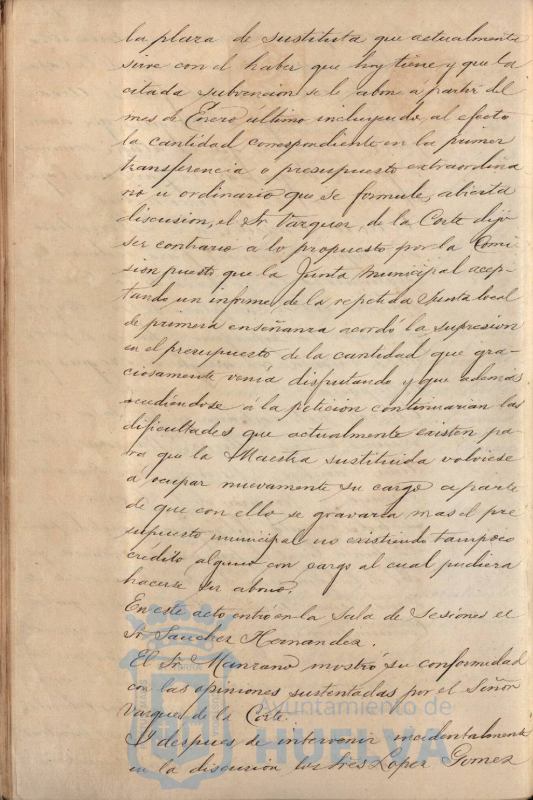 la plaza de sustituta que actualmente
sirve con el haber que hoy tiene y que la
citada subvencion se le abone a partir del
mes de Enero ultimo incluyendo al efecto
la cantidad correspondiente en la primer
transferencia o presupuesto extraordina
rio u ordinario que se formule, abierta
discusion, el Sr Vazquez de la Corte dijo
ser contrario a lo propuesto por la Comi
sion puesto que la Junta Municipal acep-
tando un informe de la repetida Junta local
de primera enseñanza acordó la supresion
en el presupuesto de la cantidad que gra-
ciosamente venía disfrutando y que además
accediéndose á la peticion continuarian las
dificultades que actualmente existen pa-
ra que la Maestra sustituida volviese
a ocupar nuevamente su cargo aparte
de que con ello se gravaria mas el pre
supuesto municipal no existiendo tampoco
credito alguno con cargo al cual pudiera
hacerse su abono.
En este acto entró en la Sala de Sesiones el
Sr Sanchez Hernandez.
El Sr Manzano mostró su conformidad
con las opiniones sustentadas por el Señor
Vazquez de la Corte.
Y despues de intervenir incidentalmente
en la discusion los Sres Lopez Gomez
Ayuntamiento de
HUELVA